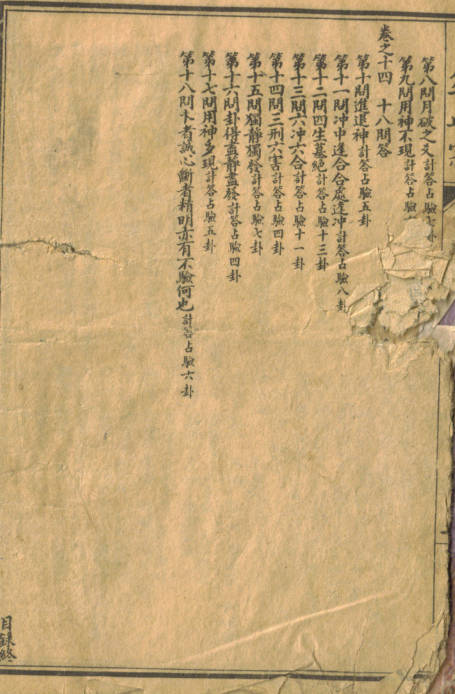 第八問月破之爻計答占驗七卦
第九問用神不現計答占驗
卷之十四 十八問答
第十問進退神計答占驗五卦
第十一問冲中逢合合處逢冲計答占驗八卦
第十二問四生墓絶計答占驗十三卦
第十三問六冲六合計答占驗十一卦
第十四問三刑六害計答占驗四卦
第十五問獨靜獨發計答占驗七卦
第十六問卦得盡靜盡發計答占驗四卦
第十七問用神多現計答占驗五卦
第十八問卜者誠心斷者精明亦有不驗何也計答占驗六卦
目録終